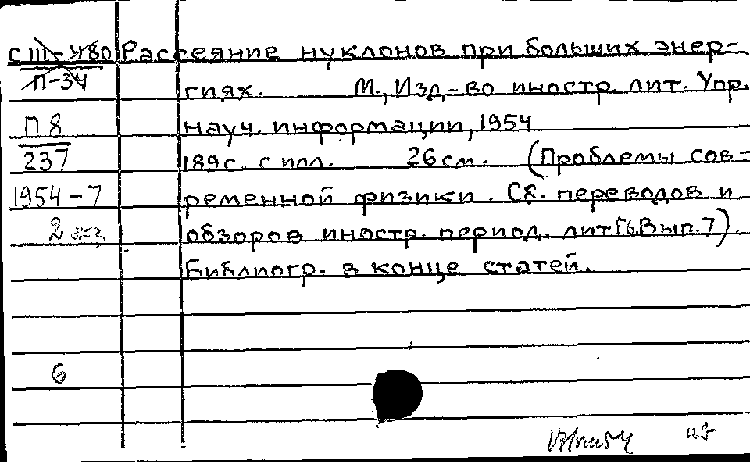 С III-480 Рассеяние нуклонов при больших энер-
П-34 гиях. М., Изд-во иностр. лит. Упр.
П8 науч. информации, 1954
237 189с. с илл. 26 см. (Проблемы сов-
1954-7 ременной физики. Сб. переводов и
2 экз. обзоров иностр. период. лит. Вып. 7)
Библиогр. в конце статей.
6